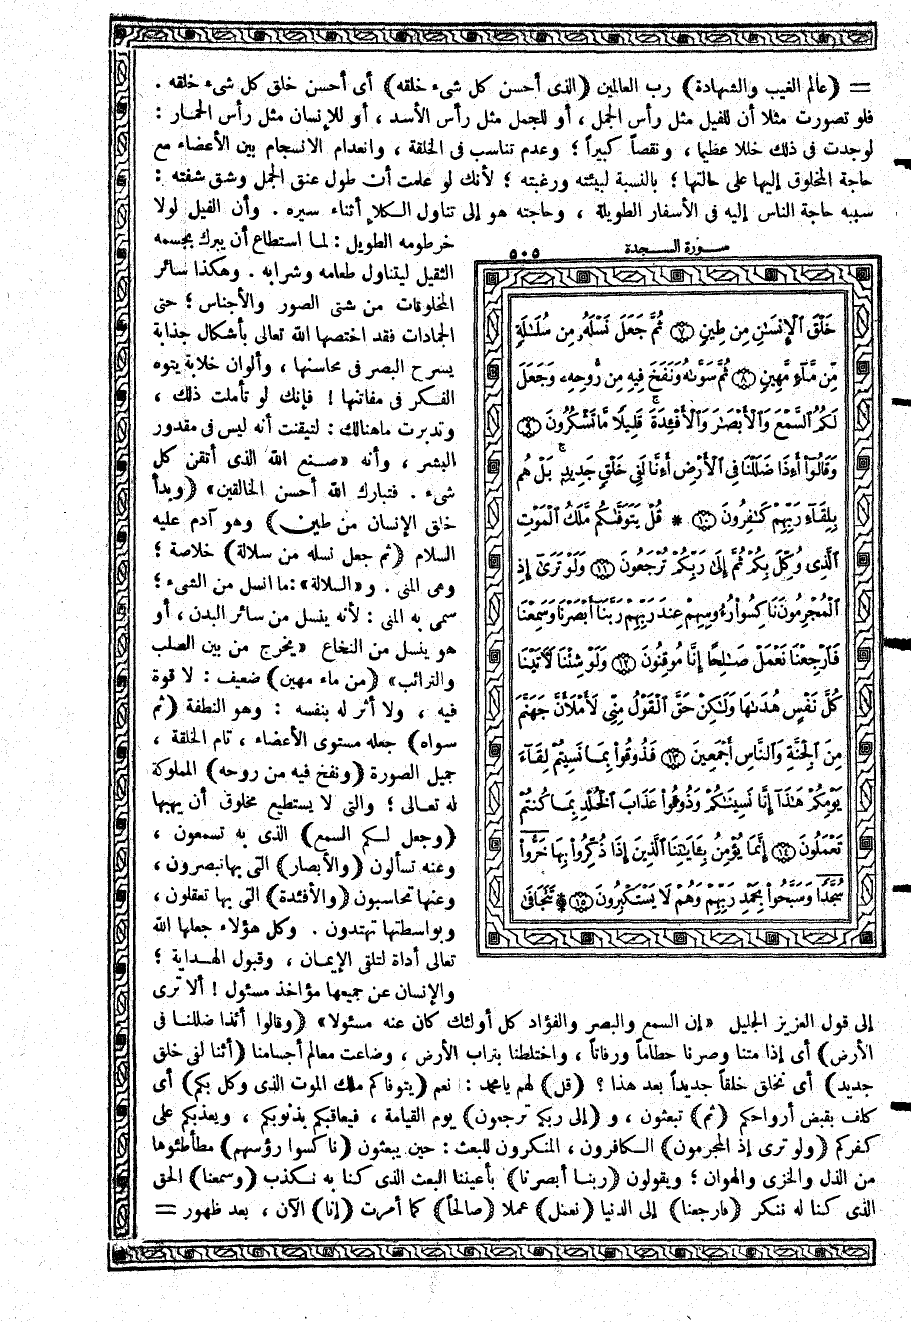 = (عالم الغيب والشهادة) رب العالمين (الذى أحسن كل شىء خلقه) أى أحسن خلق كل شىء خلقه .
فلو تصورت مثلا أن للفيل مثل رأس الجمل ، أو للجمل مثل رأس الأسد ، أو للإنسان مثل رأس الحمار :
لوجدت فى ذلك خللا عظيما ، ونقصاً كبيراً ؛ وعدم تناسب فى الخلقة ، وانعدام الانسجام بين الأعضاء مع
حاجة المخلوق إليها على حالتها ؛ بالنسبة لبيئته ورغبته ؛ لأنك لو علمت أن طول عنق الجمل وشق شفته :
سببه حاجة الناس إليه فى الأسفار الطويلة ، وحاجته هو إلى تناول الكلأ أثناء سيره . وأن الفيل لولا
خرطومه الطويل : لما استطاع أن يبرك بجسمه
الثقيل ليتناول طعامه وشرابه . وهكذا سائر
المخلوقات من شتى الصور والأجناس ؛ حتى
الجمادات فقد اختصها الله تعالى بأشكال جذابة
يسرح البصر فى محاسنها ، وألوان خلابة يتوه
الفكر فى مفاتنها ! فإنك لو تأملت ذلك ،
وتدبرت ماهنالك : لتيقنت أنه ليس فى مقدور
البشر ، وأنه «صنع الله الذى أتقن كل
شىء . فتبارك الله أحسن الخالقين» (وبدأ
خلق الإنسان من طين) وهو آدم عليه
السلام (ثم جعل نسله من سلالة) خلاصة ؛
وهى المنى . و«السلالة»: ما انسل من الشىء ؛
سمى به المنى : لأنه ينسل من سائر البدن ، أو
هو ينسل من النخاع «يخرج من بين الصلب
والترائب» (من ماء مهين) ضعيف : لا قوة
فيه ، ولا أثر له بنفسه : وهو النطفة (ثم
سواه) جعله مستوى الأعضاء ، تام الخلقة ،
جميل الصورة (ونفخ فيه من روحه) المملوكة
له تعالى ؛ والتى لا يستطيع مخلوق أن يهبها
(وجعل لكم السمع) الذى به تسمعون ،
وعنه تسألون (والأبصار) التى بها تبصرون ،
وعنها تحاسبون (والأفئدة) التى بها تعقلون ،
وبواسطتها تهتدون . وكل هؤلاء جعلها الله
تعالى أداة لتلقى الإيمان ، وقبول الهداية ؛
والإنسان عن جميعها مؤاخذ مسئول ! ألا ترى
سورة السجدة
٥٠٥
خَلْقَ ٱلْإِنسَٰنِ مِن طِينٍ ۝٧ ثُمَّ جَعَلَ نَسْلَهُۥ مِن سُلَٰلَةٍ
مِّن مَّآءٍ مَّهِينٍ ۝٨ ثُمَّ سَوَّىٰهُ وَنَفَخَ فِيهِ مِن رُّوحِهِۦ وَجَعَلَ
لَكُمُ ٱلسَّمْعَ وَٱلْأَبْصَٰرَ وَٱلْأَفْـِٔدَةَ قَلِيلًا مَّا تَشْكُرُونَ ۝٩
وَقَالُوٓا۟ أَءِذَا ضَلَلْنَا فِى ٱلْأَرْضِ أَءِنَّا لَفِى خَلْقٍ جَدِيدٍۭ بَلْ هُم
بِلِقَآءِ رَبِّهِمْ كَٰفِرُونَ ۝١٠ * قُلْ يَتَوَفَّىٰكُم مَّلَكُ ٱلْمَوْتِ
ٱلَّذِى وُكِّلَ بِكُمْ ثُمَّ إِلَىٰ رَبِّكُمْ تُرْجَعُونَ ۝١١ وَلَوْ تَرَىٰٓ إِذِ
ٱلْمُجْرِمُونَ نَاكِسُوا۟ رُءُوسِهِمْ عِندَ رَبِّهِمْ رَبَّنَآ أَبْصَرْنَا وَسَمِعْنَا
فَٱرْجِعْنَا نَعْمَلْ صَٰلِحًا إِنَّا مُوقِنُونَ ۝١٢ وَلَوْ شِئْنَا لَءَاتَيْنَا
كُلَّ نَفْسٍ هُدَىٰهَا وَلَٰكِنْ حَقَّ ٱلْقَوْلُ مِنِّى لَأَمْلَأَنَّ جَهَنَّمَ
مِنَ ٱلْجِنَّةِ وَٱلنَّاسِ أَجْمَعِينَ ۝١٣ فَذُوقُوا۟ بِمَا نَسِيتُمْ لِقَآءَ
يَوْمِكُمْ هَٰذَآ إِنَّا نَسِينَٰكُمْ وَذُوقُوا۟ عَذَابَ ٱلْخُلْدِ بِمَا كُنتُمْ
تَعْمَلُونَ ۝١٤ إِنَّمَا يُؤْمِنُ بِـَٔايَٰتِنَا ٱلَّذِينَ إِذَا ذُكِّرُوا۟ بِهَا خَرُّوا۟
سُجَّدًا وَسَبَّحُوا۟ بِحَمْدِ رَبِّهِمْ وَهُمْ لَا يَسْتَكْبِرُونَ ۝١٥ * تَتَجَافَىٰ
إلى قول العزيز الجليل «إن السمع والبصر والفؤاد كل أولئك كان عنه مسئولا» (وقالوا أئذا ضللنا فى
الأرض) أى إذا متنا وصرنا حطاماً ورفاتاً ، واختلطنا بتراب الأرض ، وضاعت معالم أجسامنا (أئنا لفى خلق
جديد) أى نخلق خلقاً جديداً بعد هذا ؟ (قل) لهم يا محمد : نعم (يتوفاكم ملك الموت الذى وكل بكم) أى
كلف بقبض أرواحكم (ثم) تبعثون ، و (إلى ربكم ترجعون) يوم القيامة ، فيعاقبكم بذنوبكم ، ويعذبكم على
كفركم (ولو ترى إذ المجرمون) الكافرون ، المنكرون للبعث : حين يبعثون (ناكسوا رؤسهم) مطأطئوها
من الذل والخزى والهوان ؛ ويقولون (ربنا أبصرنا) بأعيننا البعث الذى كنا به نكذب (وسمعنا) الحق
الذى كنا له ننكر (فارجعنا) إلى الدنيا (نعمل) عملا (صالحاً) كما أمرت (إنا) الآن ، بعد ظهور =